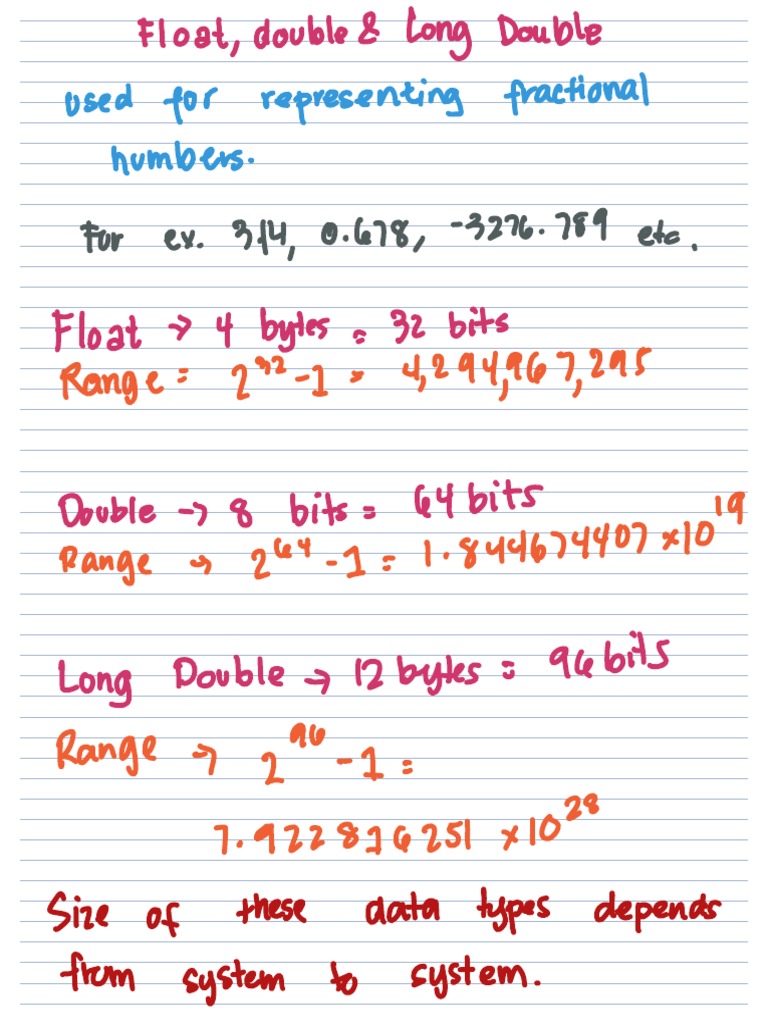 Float, double & Long Double
used for representing fractional
numbers.
For ex. 3.14, 0.678, -3276.789 etc.
Float → 4 bytes = 32 bits
Range = 2³² - 1 = 4,294,967,295
Double → 8 bits = 64 bits
Range → 2⁶⁴ - 1 = 1.844674407 × 10¹⁹
Long Double → 12 bytes = 96 bits
Range → 2⁹⁶ - 1 =
7.922816251 × 10²⁸
Size of these data types depends
from system to system.